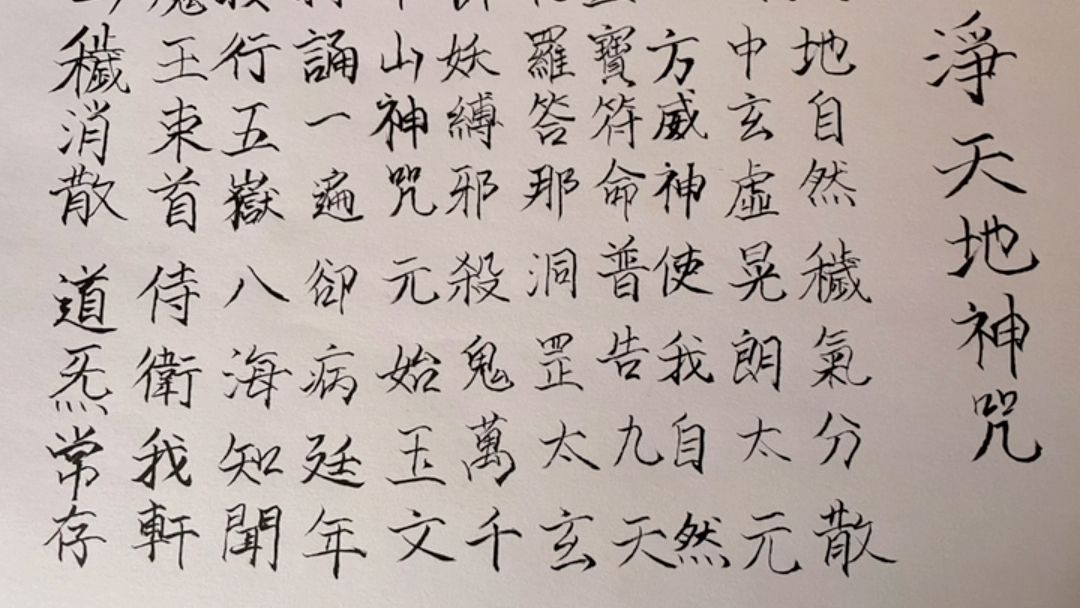 淨天地神咒
地自然穢氣分散
中玄虛晃朗太元
方威神使我自然
寶符命普告九天
羅答那洞罡太玄
妖縛邪殺鬼萬千
山神咒元始玉文
誦一遍卻病延年
行五嶽八海知聞
魔王束首侍衛我軒
穢消散道炁常存